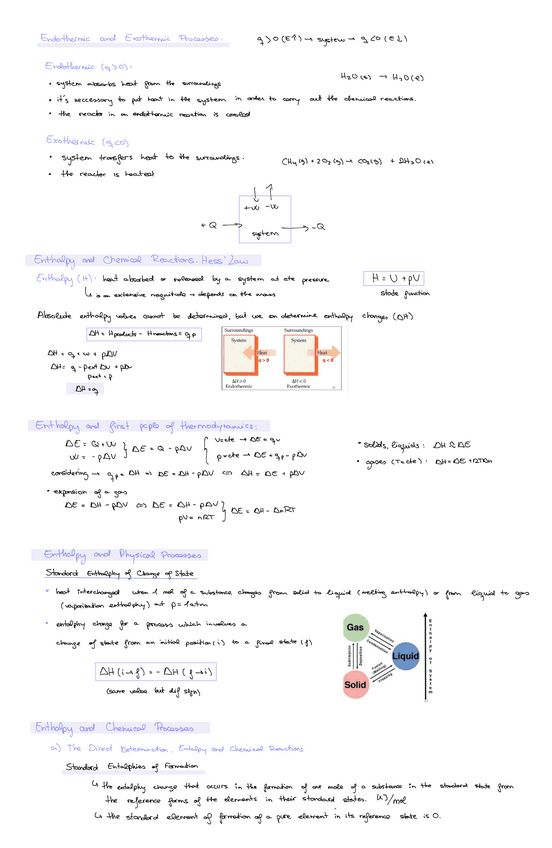 Endothermic and Exothermic Processes:
q>0 (E↑) → system → q<0 (E↓)
Endothermic (q>0):
• system absorbs heat from the surroundings
H2O(s) → H2O(l)
• it's neccessary to put heat in the system in order to carry out the chemical reactions.
• the reactor in an endothermic reaction is cooled
Exothermic (q<0)
• system transfers heat to the surroundings.
CH4(g) + 2O2(g) → CO2(g) + 2H2O(l)
• the reactor is heated
+W -W
+Q → system → -Q
Enthalpy and Chemical Reactions. Hess' Law
Enthalpy (H): heat absorbed or released by a system at cte pressure
H = U + pV
↳ is an extensive magnitude → depends on the mass
state function
Absolute enthalpy values cannot be determined, but we can determine enthalpy changes (ΔH)
ΔH = Hproducts - Hreactions = qp
ΔH = q + w + pΔV
ΔH = q - pext ΔV + pΔV
pext = p
ΔH = q
Surroundings Surroundings
System System
Heat Heat
q > 0 q < 0
ΔH > 0 ΔH < 0
Endothermic Exothermic
Enthalpy and first pcple of thermodynamics:
ΔE = Q + W
W = -pΔV
} ΔE = Q - pΔV
{ V=cte → ΔE = qv
p=cte → ΔE = qp - pΔV
• solids, liquids: ΔH ≈ ΔE
• gases (T=cte): ΔH = ΔE + RTΔn
considering → qp = ΔH ⇒ ΔE = ΔH - pΔV ⇔ ΔH = ΔE + pΔV
• expansion of a gas
ΔE = ΔH - pΔV ⇔ ΔE = ΔH - pΔV
pV = nRT
} ΔE = ΔH - ΔnRT
Enthalpy and Physical Processes
Standard Enthalphy of Change of State
• heat interchanged when 1 mol of a substance changes from solid to liquid (melting enthalpy) or from liquid to gas
(vaporization enthalphy) at p = 1atm
• entalphy change for a process which involves a
change of state from an initial position (i) to a final state (f)
ΔH (i→f) = - ΔH (f→i)
(same value but dif sign)
Gas
Liquid
Solid
Vaporization
Condensation
Sublimation
Deposition
Fusion
Freezing
Enthalpy of System
Enthalpy and Chemical Processes
a) The Direct Determination. Entalpy and Chemical Reactions
Standard Entalphies of Formation
↳ the entalphy change that occurs in the formation of one mole of a substance in the standard state from
the reference forms of the elements in their standard states. kJ/mol
↳ the standard element of formation of a pure element in its reference state is 0.